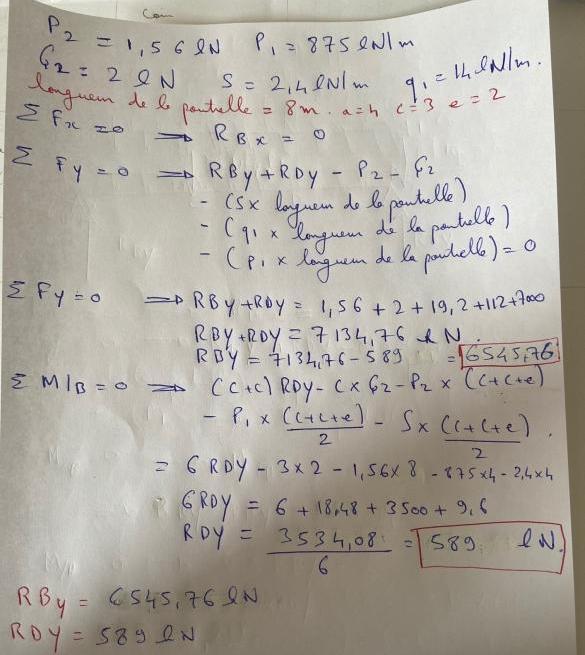 Com
P2 = 1,56 lN P1 = 875 lN/m
G2 = 2 lN S = 2,4 lN/m q1 = 14 lN/m.
longueur de la poutrelle = 8m. a=4 c=3 e=2
Σ Fx = 0 ⟹ RBx = 0
Σ Fy = 0 ⟹ RBy + RDY - P2 - G2
- (S x longueur de la poutrelle)
- (q1 x longueur de la poutrelle)
- (P1 x longueur de la poutrelle) = 0
Σ Fy = 0 ⟹ RBY + RDY = 1,56 + 2 + 19,2 + 112 + 7000
RBY + RDY = 7134,76 lN.
RBY = 7134,76 - 589 = 6545,76
Σ M/B = 0 ⟹ (c+c) RDY - c x G2 - P2 x (c+c+e)
- P1 x (c+c+e)/2 - S x (c+c+e)/2.
= 6 RDY - 3x2 - 1,56x8 - 875x4 - 2,4x4
6RDY = 6 + 18,48 + 3500 + 9,6
RDY = 3534,08/6 = 589 lN.
RBy = 6545,76 lN
RDY = 589 lN